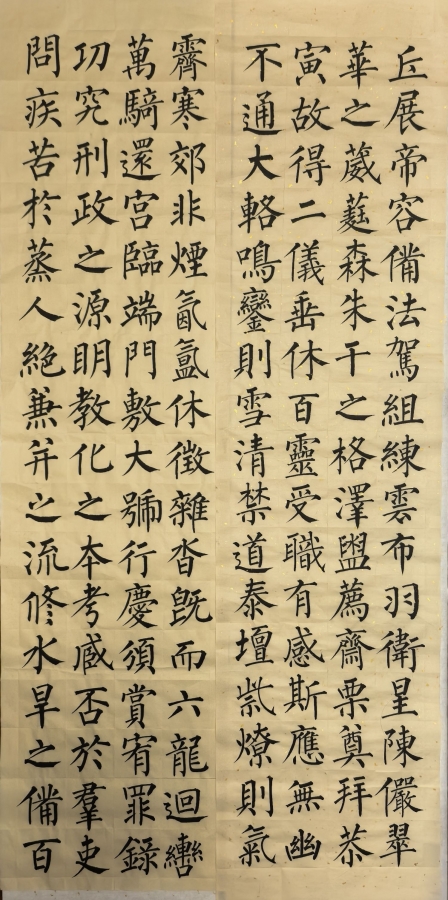 丘展帝容備法駕組練雲布羽衛星陳儼翠
華之葳蕤森朱干之格澤盥薦齋栗奠拜恭
寅故得二儀垂休百靈受職有感斯應無幽
不通大輅鳴鑾則雪清禁道泰壇紫燎則氣
霽寒郊非煙氤氳休徵雜沓既而六龍迴轡
萬騎還宮臨端門敷大號行慶頒賞宥罪錄
功究刑政之源明教化之本考臧否於羣吏
問疾苦於蒸人絕兼并之流修水旱之備百